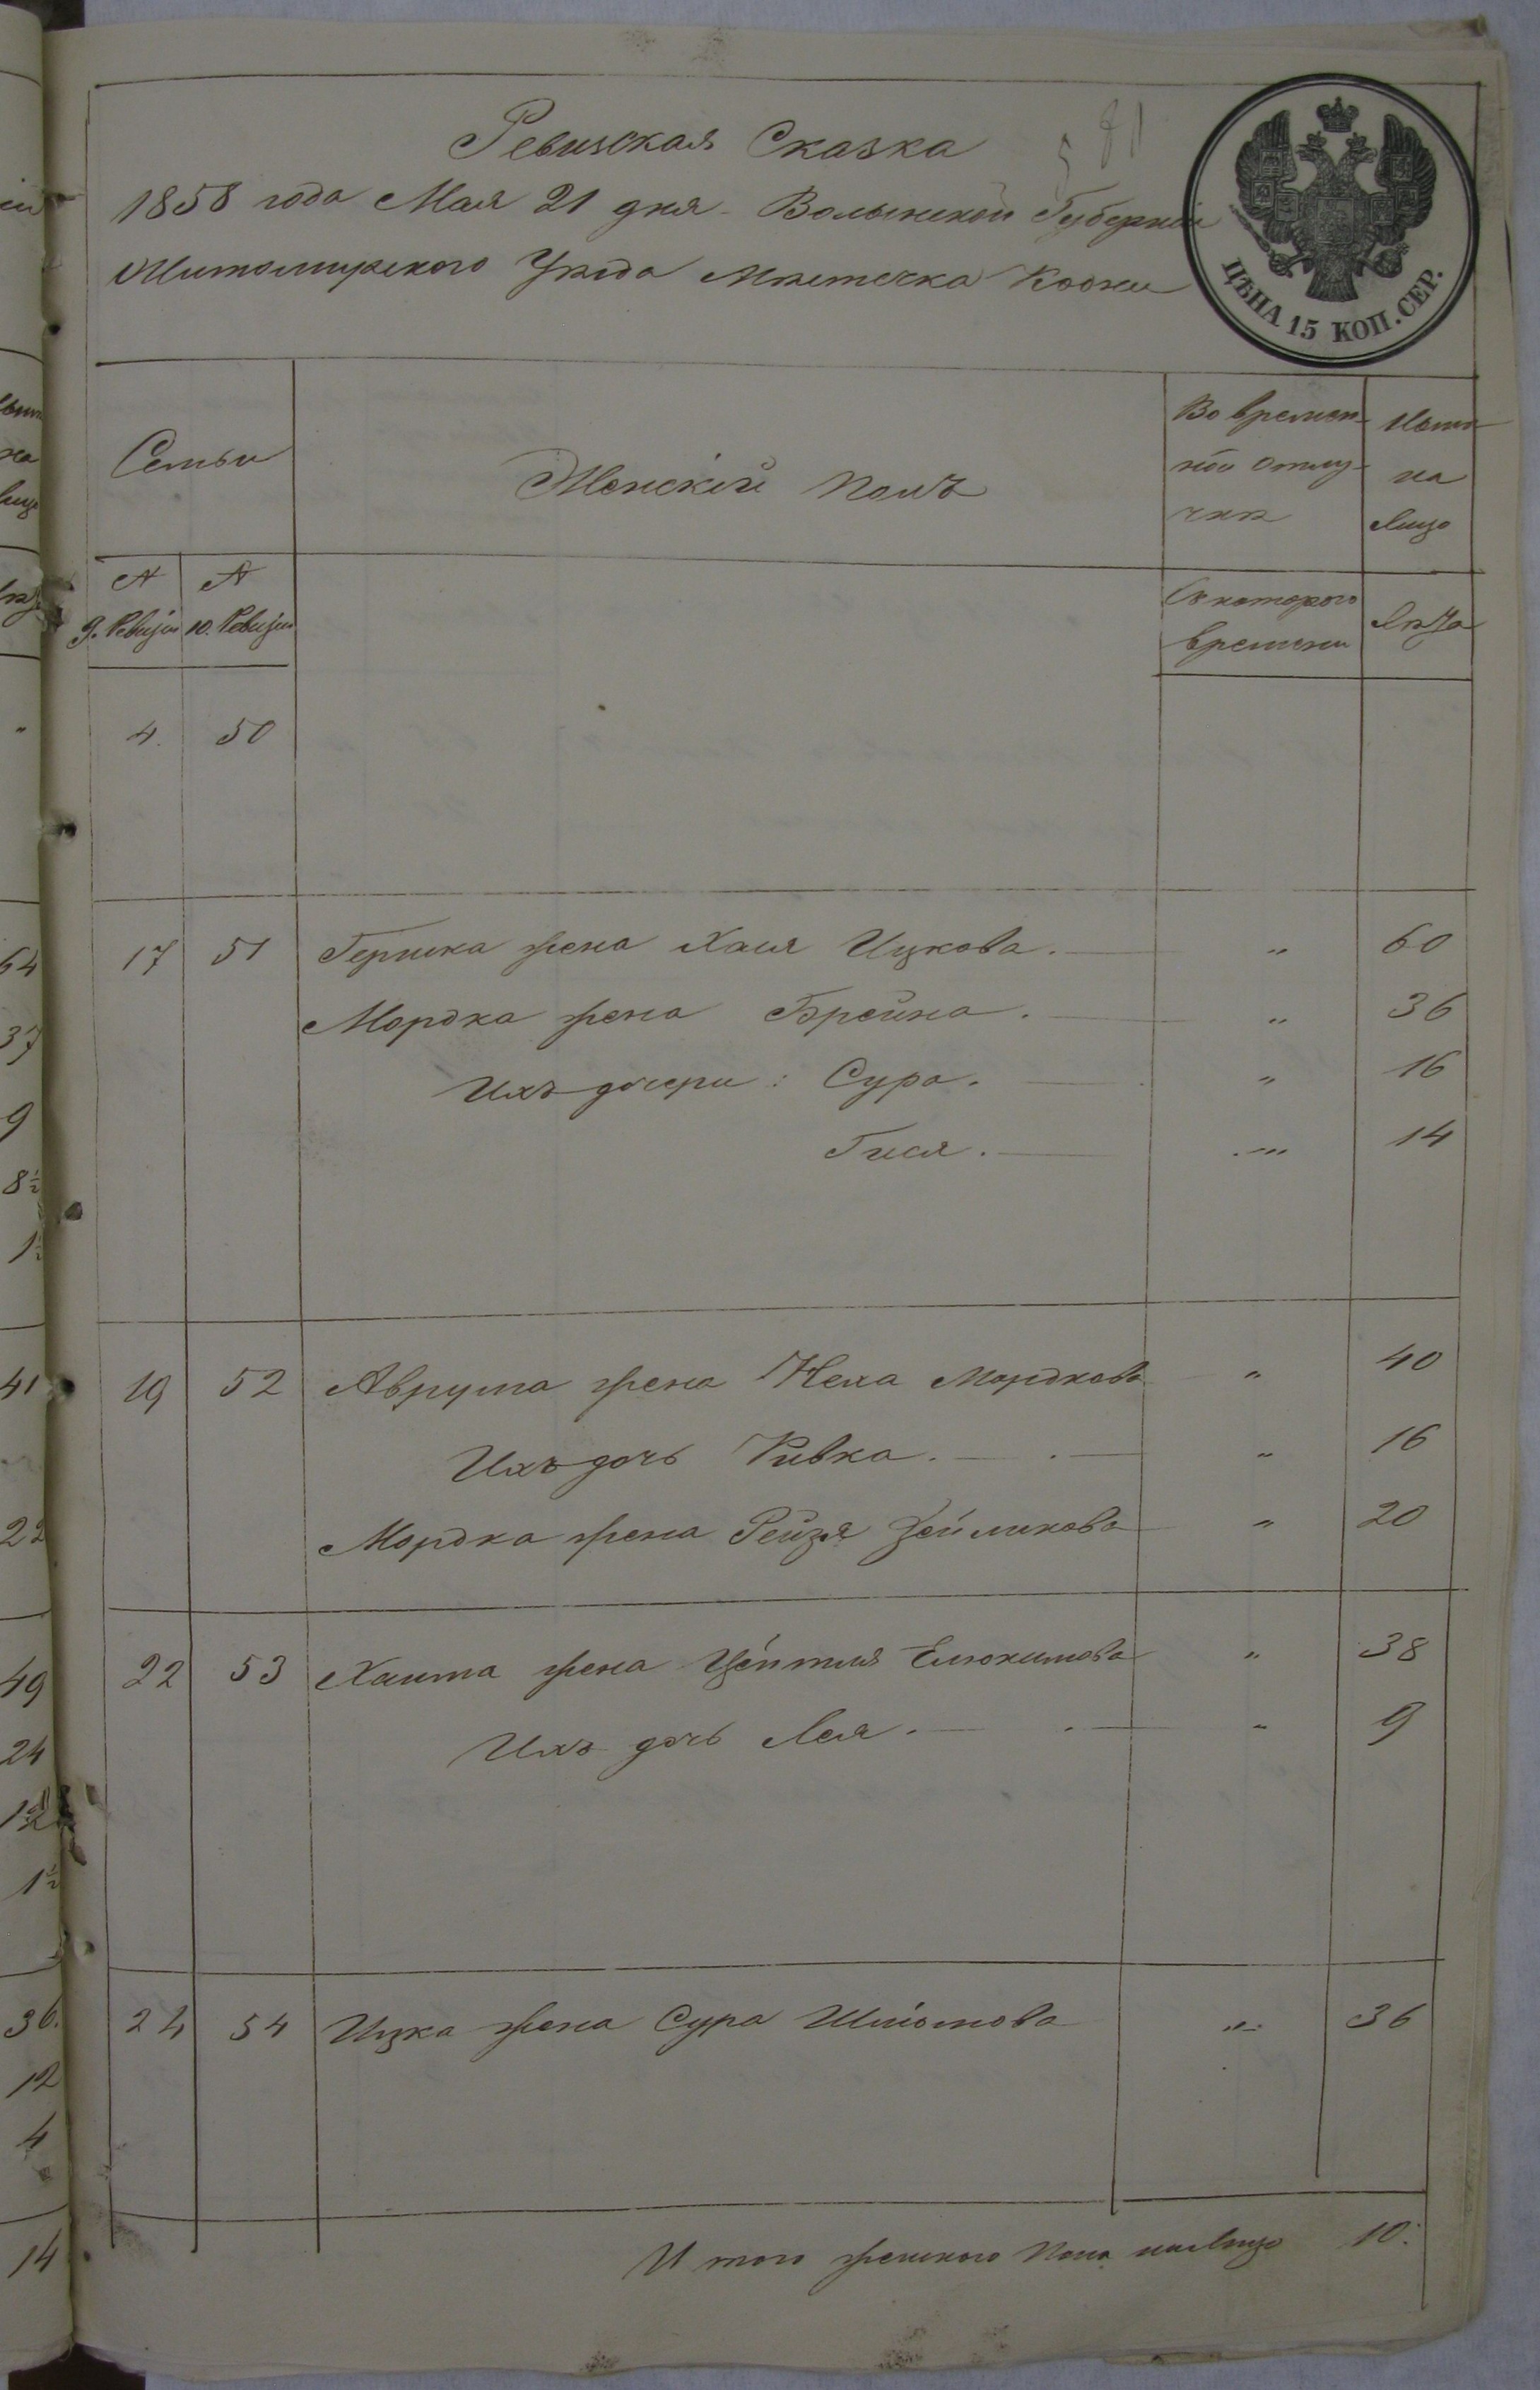 Ревизская Сказка
581
1858 года Мая 21 дня Волынской Губерніи
Житомирского Уѣзда Мѣстечка Кодни
ЦѢНА 15 КОП. СЕР.
Семьи
Женскій полъ
Во времен-
ной отлу-
чкѣ
Ныне
на
Лицо
№ 9. Ревизіи
№ 10. Ревизіи
Съ которого
времени
Лѣта
4. 50
17 51 Гершка жена Хаия Ицкова. „ 60
Мордка жена Брейна. „ 36
Ихъ дочери: Сура. „ 16
Гися. „ 14
19 52 Аврума жена Неха Мордкова „ 40
Ихъ дочь Ривка. „ 16
Мордка жена Рейзя Зейликова „ 20
22 53 Хаима жена Елюкимова „ 38
Ихъ дочь Лея. „ 9
24 54 Ицка жена Сура Шліомова „ 36
И того женского Пола на Лицо 10.